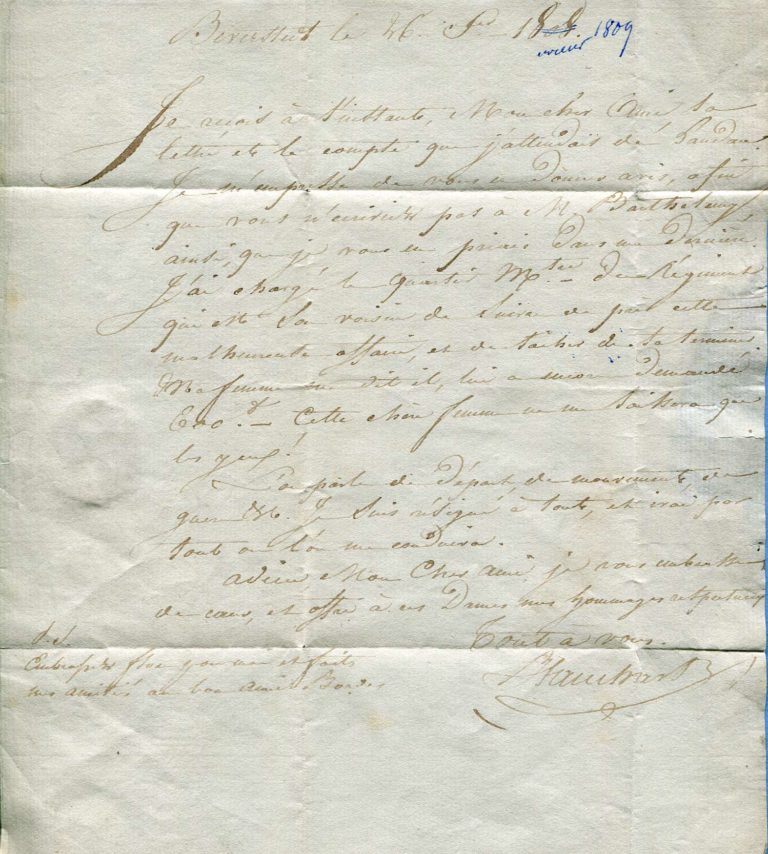 le
1809
Je reçois à l'instant, Mon cher Ami la
lettre et le compte que j'attendais de
Je m'empresse de vous en donner avis, afin
que vous n'écriviez pas à Mr Barthelemy
ainsi, que je vous en priais dans ma dernière.
J'ai chargé le quartier Mtre du Régiment
qui est son voisin de suivre de près cette
malheureuse affaire, et de tâcher de la terminer.
Ma femme me dit il, lui a encore demandé
Cette chère femme ne me laissera que
les yeux!
On parle de départ, de mouvements, de
guerre &c. Je suis résigné à tout, et irai par
tout où l'on me conduira.
adieu Mon Cher ami, je vous embrasse
de cœur, et offre à ces Dames mes hommages respectueux
Tout à vous.
P.S.
Embrassez pour moi et faites
mes amitiés au bon ami